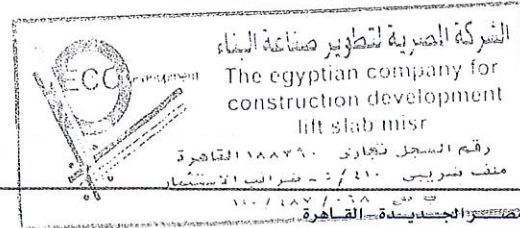 الشركة المصرية لتطوير صناعة البناء
The egyptian company for
construction development
lift slab misr
ECO
رقم السجل تجارى ١٨٨٧٩٠ القاهرة
ملف ضريبى ٤١٠ / ٥ - ضرائب الاستثمار
١٠٠ / ٤٨٧ / ٠٦٨
الجديدة القاهرة